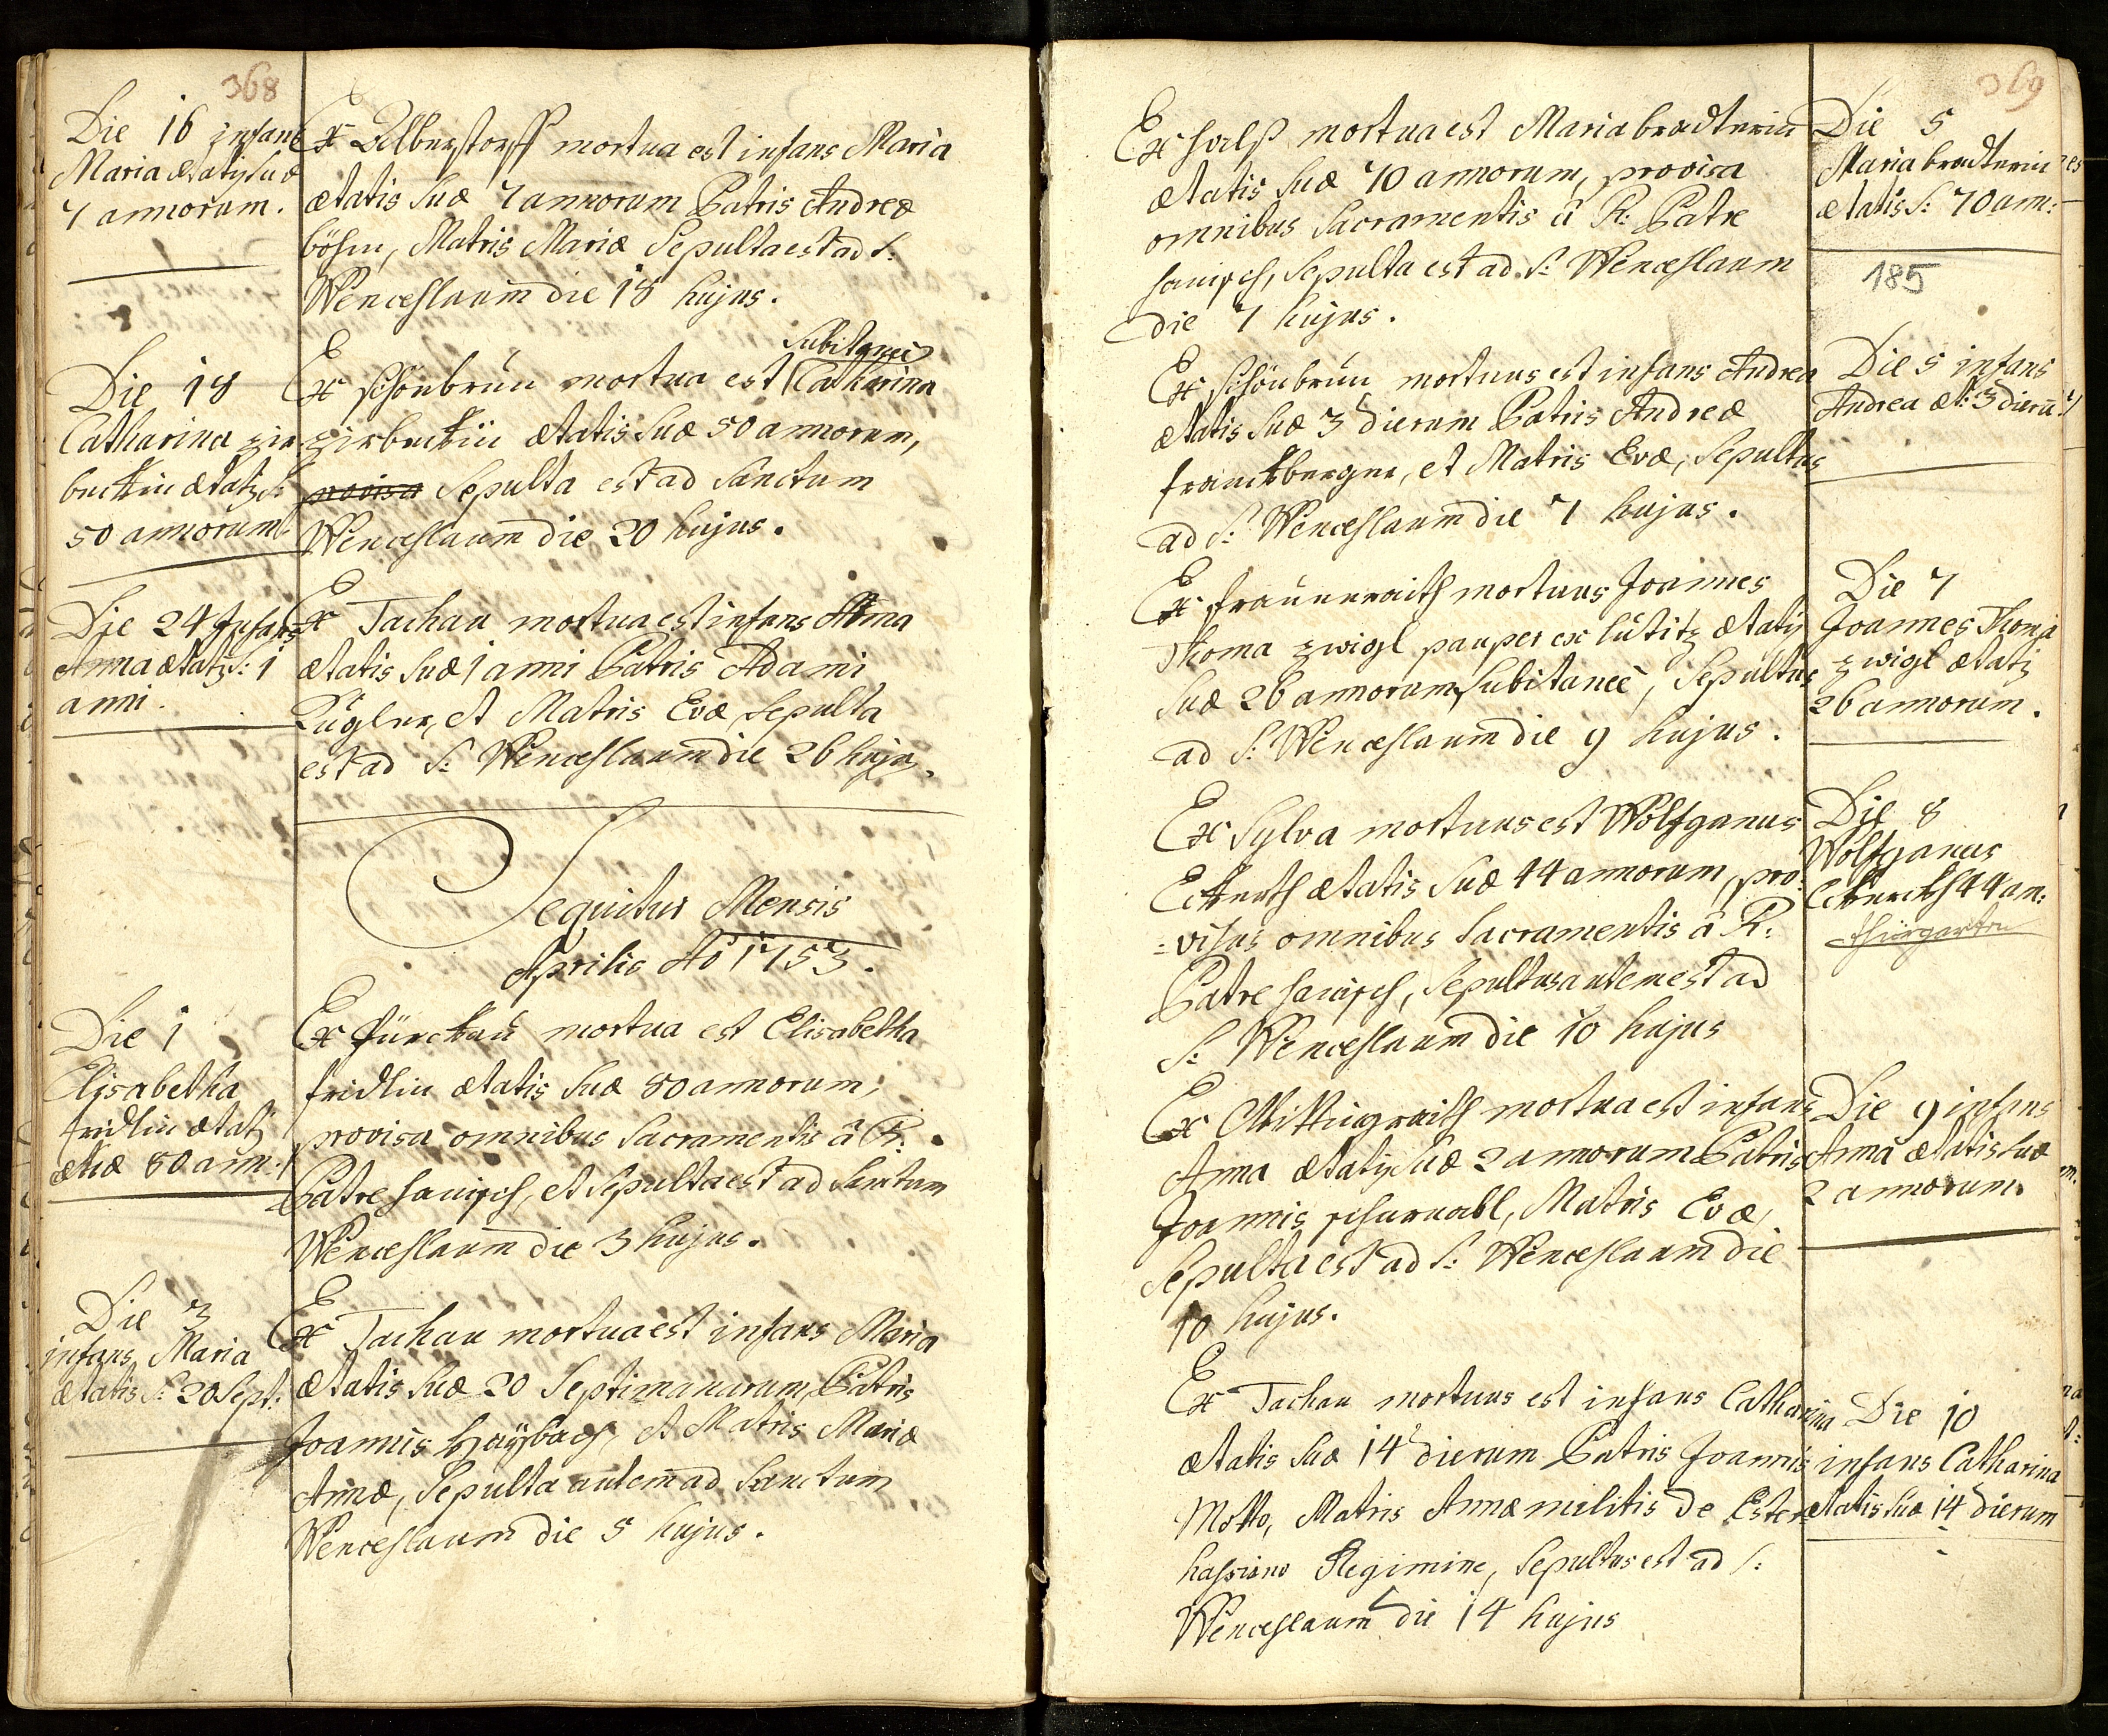 368
Die 16 infans
Maria ætatis suæ
7 annorum.
Ex Alberstorff mortua est infans Maria
ætatis suæ 7 annorum Patris Andreæ
böhm, Matris Mariæ Sepulta est ad S:
Wenceslaum die 18 hujus.
Die 18
Catharina zir
buckin ætatis S:
50 annorum
Subitanei
Ex schönbrun mortua est Catharina
zirbuckin ætatis suæ 50 annorum,
provisa Sepulta est ad Sanctum
Wenceslaum die 20 hujus.
Die 24 Infans
Anna ætatis S: 1
anni.
Ex Tachau mortua est infans Anna
ætatis suæ 1 anni Patris Adami
Züglner, et Matris Evæ, Sepulta
est ad S: Wenceslaum die 26 hujus.
Sequitur Mensis
Aprilis Ao 1753.
Die 1
Elisabetha
fridlin ætatis
suæ 80 ann:
Ex Zürckau mortua est Elisabetha
fridlin ætatis suæ 80 annorum,
provisa omnibus Sacramentis â R:
Patre hanisch, et Sepulta est ad Sanctum
Wenceslaum die 3 hujus.
Die 3
infans Maria
ætatis S: 20 Sept:
Ex Tachau mortua est infans Maria
ætatis suæ 20 Septimanarum, Patris
Joannis Haÿbach, et Matris Mariæ
Annæ, Sepulta autem ad Sanctum
Wenceslaum die 5 hujus.
369
Ex hals mortua est Maria bradterin
ætatis suæ 70 annorum, provisa
omnibus Sacramentis â R: Patre
hanisch, Sepulta est ad S: Wenceslaum
die 7 hujus.
Die 5
Maria bradterin
ætatis S: 70 ann:
185
Ex schönbrun mortuus est infans Andrea
ætatis suæ 3 dierum Patris Andreæ
franckberger, et Matris Evæ, Sepultus
ad S: Wenceslaum die 7 hujus.
Die 5 infans
Andrea æt: 3 dierū
Ex frauenraith mortuus Joannes
Thoma zwigl pauper ex lutitz ætatis
suæ 26 annorum subitaneè, Sepultus
ad S: Wenceslaum die 9 hujus.
Die 7
Joannes Thoma
zwigl ætatis
26 annorum.
Ex Sylva mortuus est Wolfganus
Eckerth ætatis suæ 44 annorum, pro-
=visus omnibus Sacramentis â R:
Patre hanisch, Sepultus autem est ad
S: Wenceslaum die 10 hujus
Die 8
Wolfganus
Eckerth 44 an:
thürgarten
Ex Mittigraith mortua est infans
Anna ætatis suæ 2 annorum Patris
Joannis schurnabl, Matris Evæ,
Sepulta est ad S: Wenceslaum die
10 hujus.
Die 9 infans
Anna ætatis suæ
2 annorum
Ex Tachau mortuus est infans Catharina
ætatis suæ 14 dierum Patris Joannis
Motto, Matris Annæ militis de Ester=
hassiano Regimine, Sepultus est ad S:
Wenceslaum die 14 hujus
Die 10
infans Catharina
ætatis suæ 14 dierum